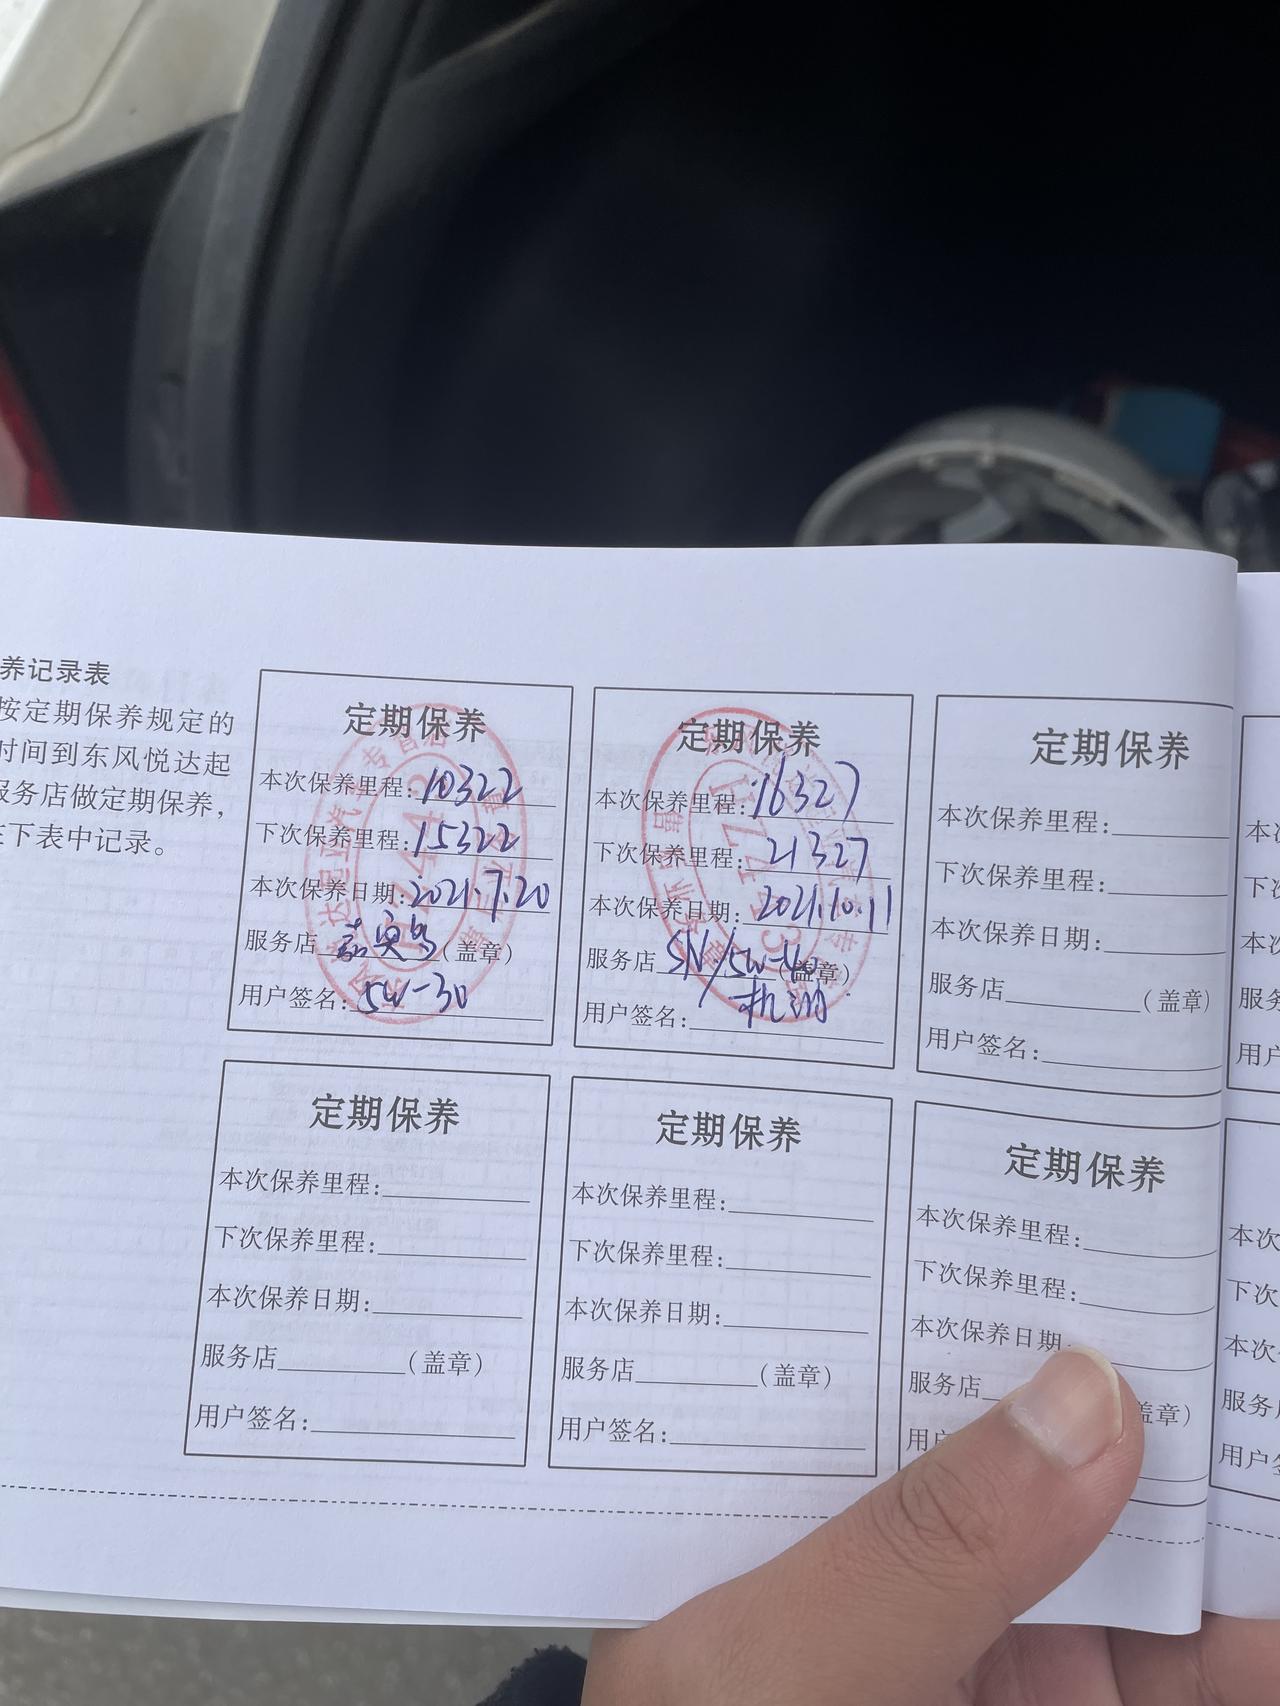 养记录表
按定期保养规定的
时间到东风悦达起
服务店做定期保养，
下表中记录。
定期保养
本次保养里程:10322
下次保养里程:15322
本次保养日期:2021.7.20
服务店嘉实多(盖章)
用户签名:5W-30
定期保养
本次保养里程:16327
下次保养里程:21327
本次保养日期:2021.10.11
服务店SN/5W-40(盖章)
机油
用户签名:
定期保养
本次保养里程:
下次保养里程:
本次保养日期:
服务店(盖章)
用户签名:
本
下次
本次
服务
用户
定期保养
本次保养里程:
下次保养里程:
本次保养日期:
服务店(盖章)
用户签名:
定期保养
本次保养里程:
下次保养里程:
本次保养日期:
服务店(盖章)
用户签名:
定期保养
本次保养里程:
下次保养里程:
本次保养日期
服务店 盖章)
用户
本次
下次
本次
服务
用户签